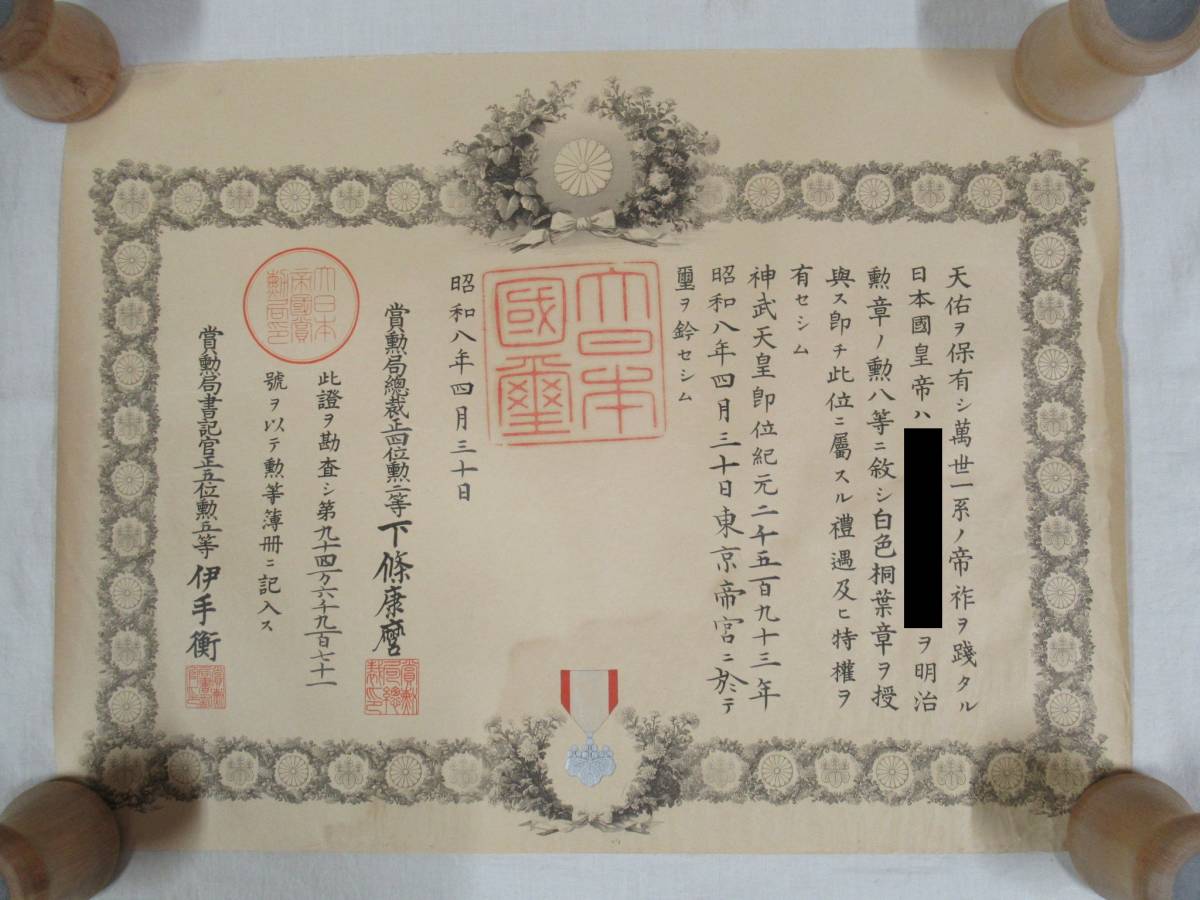 天佑ヲ保有シ萬世一系ノ帝祚ヲ踐タル
日本國皇帝ハ
ヲ明治
勲章ノ勲八等ニ敘シ白色桐葉章ヲ授
與ス即チ此位ニ屬スル禮遇及ヒ特權ヲ
有セシム
神武天皇即位紀元二千五百九十三年
昭和八年四月三十日東京帝宮ニ於テ
璽ヲ鈐セシム
大日本
國璽
昭和八年四月三十日
賞勲局總裁正四位勲二等下條康麿
賞勲
局總
裁印
此證ヲ勘査シ第九十四万六千九百七十一
號ヲ以テ勲等簿册ニ記入ス
大日本
帝國賞
勲局印
賞勲局書記官正五位勲五等伊手衡